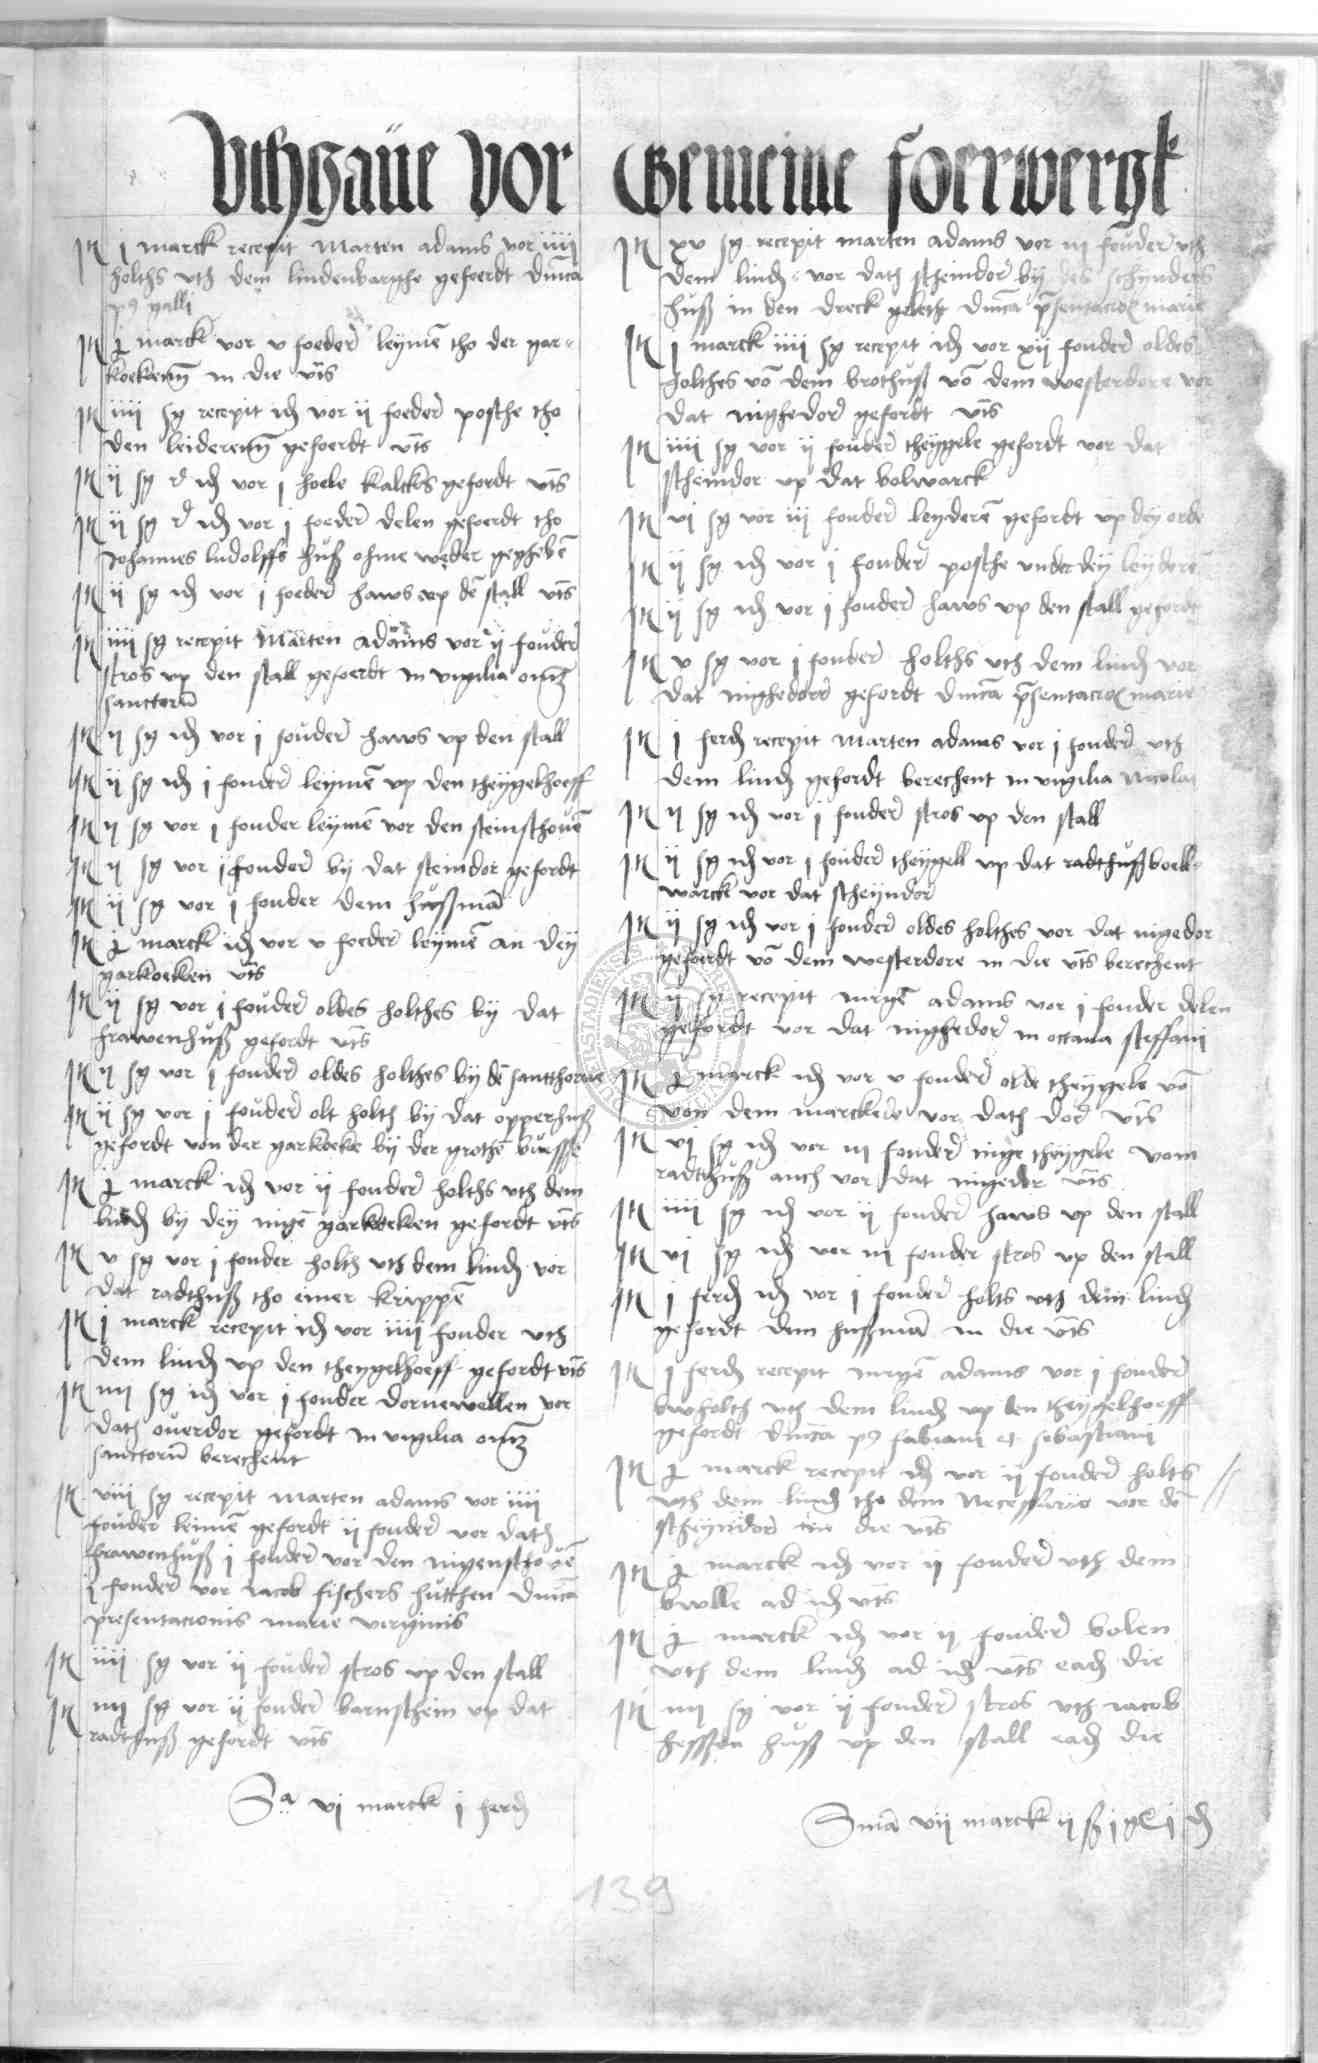 Vthgaue vor Gemeine foerwergk
It j marck recepit Marten adams vor iiij
holths vth dem lindenbarghe gefoerdt dnica
p9 galli
It j marck vor v foeder leymē tho der gar-
koekenn in die vts
It iiij sg recepit idē vor ij foeder posthe tho
den leiderenn gefoerdt vts
It ij sg d idē vor j hoele kalckes gefordt vts
It ij sg d idē vor j foeder delen gefoerdt tho
Johannes ludolffs huß ohme weder geghebē
It ij sg idē vor j foeder haws vp dē stall vts
It iiij sg recepit Marten adams vor ij fouder
stros vp den stall gefoerdt in vigilia oim
sanctorū
It ij sg idē vor j fouder haws vp den stall
It ij sg idē j fouder leymē vp den theygelhoeff
It ij sg vor j fouder leymē vor den steinschouē
It ij sg vor j fouder by dat steindor gefordt
It ij sg vor j fouder dem hußmā
It j marck idē vor v foeder leymē an dey
garkoeken vts
It ij sg vor j fouder oldes holthes by dat
frawenhuß gefordt vts
It ij sg vor j fouder oldes holthes by dē santthorne
It ij sg vor j fouder olt holth by dat opperhuß
gefordt von der garkoeke by der grothē buesse
It j marck idē vor ij fouder holths vth dem
lindē by dey nigē garkoeken gefordt vts
It v sg vor j fouder holth vth dem lindē vor
dat radthuß tho einer krippē
It j marck recepit idē vor iiij fouder vth
dem lindē vp den theygelhoeff gefordt vts
It iiij sg idē vor j fouder dornewellen vor
dath ouerdor gefordt in vigilia oim
sanctorū berechent
It viij sg recepit marten adams vor iiij
fouder leimē gefordt ij fouder vor dath
frawenhuß j fouder vor den nigenstovē
j fouder vor iacob fischers hutthen dnica
presentacionis marie verginis
It iiij sg vor ij fouder stros vp den stall
It iiij sg vor ij fouder barnsthein vp dat
radthuß gefordt vts
Sa vj marck j ferdē
It xv sg recepit marten adams vor iij fouder vth
dem lindē vor dath stheindor by des schynders
huß in den dreck gelecht dnica psentacioī marie
It j marck iiij sg recepit idē vor xij fouder oldes
holthes vō dem brothuß vō dem westerdore vor
dat nighedor gefordt vts
It iiij sg vor ij fouder theygele gefordt vor dat
stheindor vp dat bolwarck
It vj sg vor iij fouder leyderē gefordt vp dey orde
It ij sg idē vor j fouder posthe vnder dey leyderē
It ij sg idē vor j fouder haws vp den stall gefordt
It v sg vor j fouder holths vth dem lindē vor
dat nighedorr gefordt dnica psentacioī marie
It j ferdē recepit marten adams vor j fouder vth
dem lindē gefordt berechent in vigilia Nicolai
It ij sg idē vor j fouder stros vp den stall
It ij sg idē vor j fouder theygell vp dat radthuß boell-
warck vor dat stheyndor
It ij sg idē vor j fouder oldes holthes vor dat nigedor
gefoerdt vō dem westerdore in die vts berechent
It ij sg recepit mrgē adams vor j fouder delen
gefordt vor dat nighedor in octaua steffani
It j marck idē vor v fouder olde theygele vō
von dem marckede vor dath dor vts
It vj sg idē vor iij fouder nige theygele vom
radthuß auch vor dat nigedor vts
It iiij sg idē vor ij fouder haws vp den stall
It vj sg idē vor iij fouder stros vp den stall
It j ferdē idē vor j fouder holts vth dem lindē
gefordt dem hußmā in die vts
It j ferdē recepit mrgē adams vor j fouder
bwholth vth dem lindē vp den theygelhoeff
gefordt dnica p9 fabiani et sebastiani
It j marck recepit idē vor ij fouder holts
vth dem lindē tho dem Necessario vor dē
stheyndor in die vts
It j marck idē vor ij fouder vth dem
bwlle ad idē vts
It j marck idē vor ij fouder bolen
vth dem lindē ad idē vts eadē die
It iiij sg vor ij fouder stros vth iacob
hesssen huß vp den stall eadē die
Sma vij marck ij ß j
139